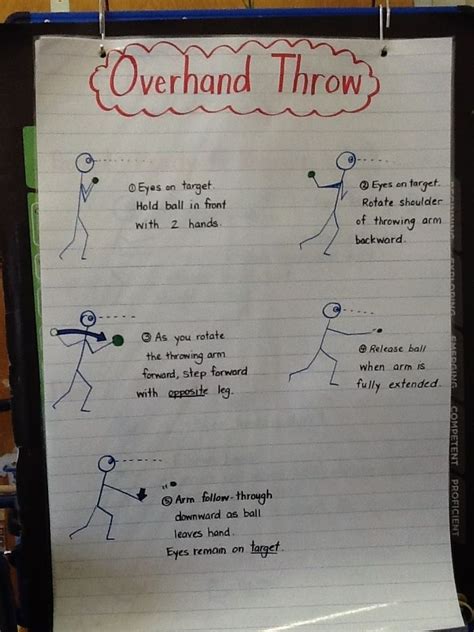 Overhand Throw
① Eyes on target.
Hold ball in front
with 2 hands.
② Eyes on target.
Rotate shoulder
of throwing arm
backward.
③ As you rotate
the throwing arm
forward, step forward
with opposite leg.
④ Release ball
when arm is
fully extended.
⑤ Arm follow-through
downward as ball
leaves hand.
Eyes remain on target.
EMERGING
COMPETENT
PROFICIENT